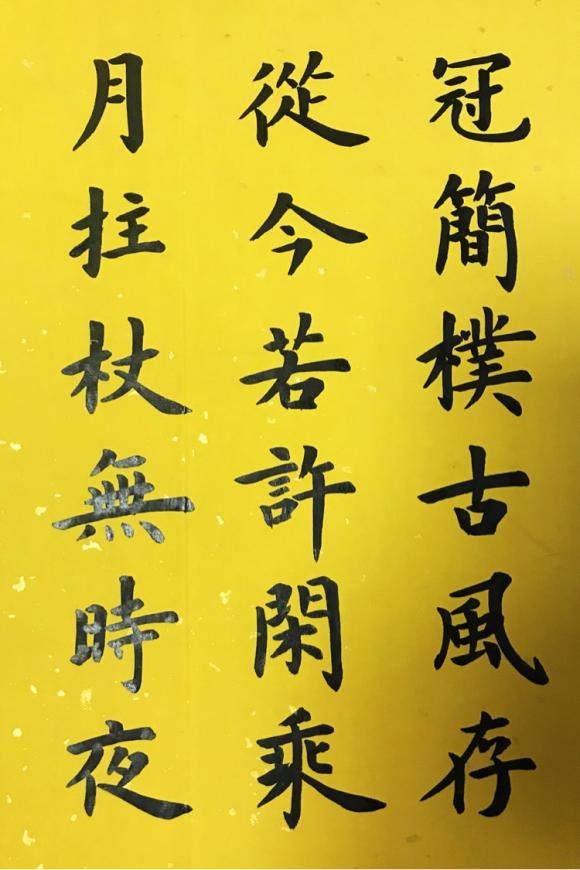 冠簡樸古風存
從今若許閑乘
月拄杖無時夜